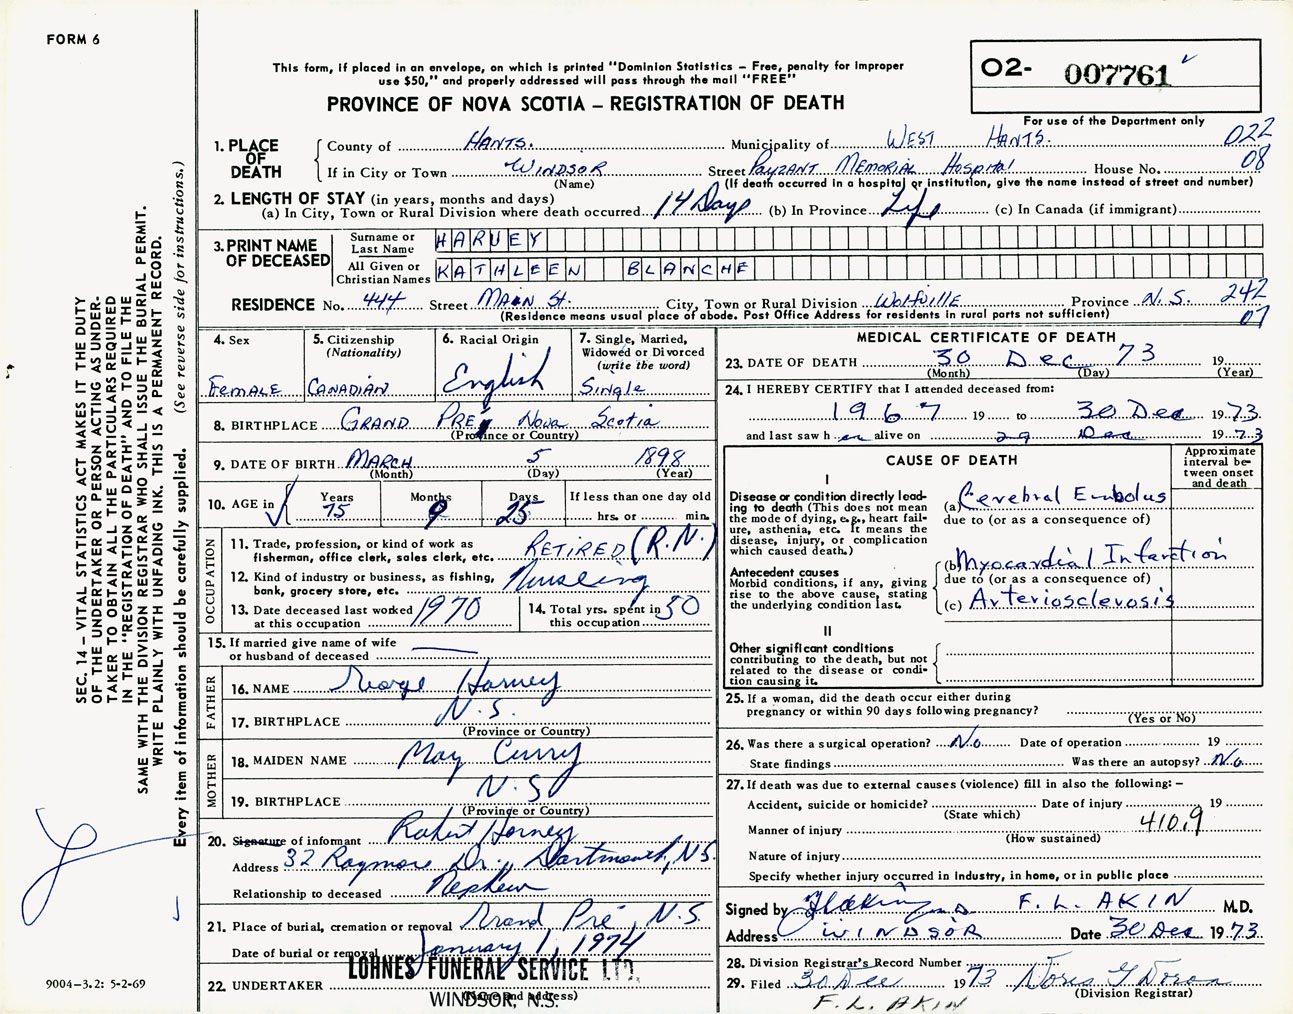 FORM 6
This form, if placed in an envelope, on which is printed "Dominion Statistics – Free, penalty for improper
use $50," and properly addressed will pass through the mail "FREE"
PROVINCE OF NOVA SCOTIA – REGISTRATION OF DEATH
O2- 007761
For use of the Department only
022
08
1. PLACE OF DEATH
County of HANTS. Municipality of WEST HANTS.
If in City or Town WINDSOR Street PAYZANT MEMORIAL HOSPITAL House No.
(Name) (If death occurred in a hospital or institution, give the name instead of street and number)
2. LENGTH OF STAY (in years, months and days)
(a) In City, Town or Rural Division where death occurred 14 Days (b) In Province Life (c) In Canada (if immigrant)
3. PRINT NAME OF DECEASED
Surname or Last Name HARVEY
All Given or Christian Names KATHLEEN BLANCHE
RESIDENCE No. 444 Street MAIN St. City, Town or Rural Division Wolfville Province N.S. 242
(Residence means usual place of abode. Post Office Address for residents in rural parts not sufficient) 07
4. Sex FEMALE
5. Citizenship (Nationality) CANADIAN
6. Racial Origin English
7. Single, Married, Widowed or Divorced (write the word) SINGLE
8. BIRTHPLACE GRAND PRE, Nova Scotia
(Province or Country)
9. DATE OF BIRTH MARCH 5 1898
(Month) (Day) (Year)
10. AGE in Years 75 Months 9 Days 25 If less than one day old
hrs. or min.
OCCUPATION
11. Trade, profession, or kind of work as fisherman, office clerk, sales clerk, etc. RETIRED (R.N.)
12. Kind of industry or business, as fishing, bank, grocery store, etc. Nursing
13. Date deceased last worked at this occupation 1970
14. Total yrs. spent in this occupation 50
15. If married give name of wife or husband of deceased
FATHER
16. NAME George Harvey
17. BIRTHPLACE N.S.
(Province or Country)
MOTHER
18. MAIDEN NAME May Curry
19. BIRTHPLACE N.S
(Province or Country)
20. Signature of informant Robert Harvey
Address 32 Raymore Dr., Dartmouth, N.S.
Relationship to deceased Nephew
21. Place of burial, cremation or removal Grand Pré, N.S.
Date of burial or removal January 1, 1974
LOHNES FUNERAL SERVICE LTD.
22. UNDERTAKER
WINDSOR, N.S.
(Name and address)
MEDICAL CERTIFICATE OF DEATH
23. DATE OF DEATH 30 Dec 73 19
(Month) (Day) (Year)
24. I HEREBY CERTIFY that I attended deceased from:
1967 19 to 30 Dec 1973
and last saw h er alive on 29 Dec 1973
CAUSE OF DEATH
Approximate interval between onset and death
I
Disease or condition directly leading to death (This does not mean the mode of dying, e.g., heart failure, asthenia, etc. It means the disease, injury, or complication which caused death.)
(a) Cerebral Embolus
due to (or as a consequence of)
Antecedent causes
Morbid conditions, if any, giving rise to the above cause, stating the underlying condition last.
(b) Myocardial Infarction
due to (or as a consequence of)
(c) Arteriosclerosis
II
Other significant conditions contributing to the death, but not related to the disease or condition causing it.
25. If a woman, did the death occur either during pregnancy or within 90 days following pregnancy?
(Yes or No)
26. Was there a surgical operation? No Date of operation 19
State findings Was there an autopsy? No
27. If death was due to external causes (violence) fill in also the following: –
Accident, suicide or homicide? Date of injury 19
(State which)
Manner of injury 410.9
(How sustained)
Nature of injury
Specify whether injury occurred in industry, in home, or in public place
Signed by F L Akin MD F. L. AKIN M.D.
Address WINDSOR Date 30 Dec 1973
28. Division Registrar's Record Number
29. Filed 30 Dec 1973 Doris G
(Division Registrar)
F. L. AKIN
SEC. 14 – VITAL STATISTICS ACT MAKES IT THE DUTY
OF THE UNDERTAKER OR PERSON ACTING AS UNDER-
TAKER TO OBTAIN ALL THE PARTICULARS REQUIRED
IN THE "REGISTRATION OF DEATH" AND TO FILE THE
SAME WITH THE DIVISION REGISTRAR WHO SHALL ISSUE THE BURIAL PERMIT.
WRITE PLAINLY WITH UNFADING INK. THIS IS A PERMANENT RECORD.
Every item of information should be carefully supplied. (See reverse side for instructions.)
9004-3.2: 5-2-69